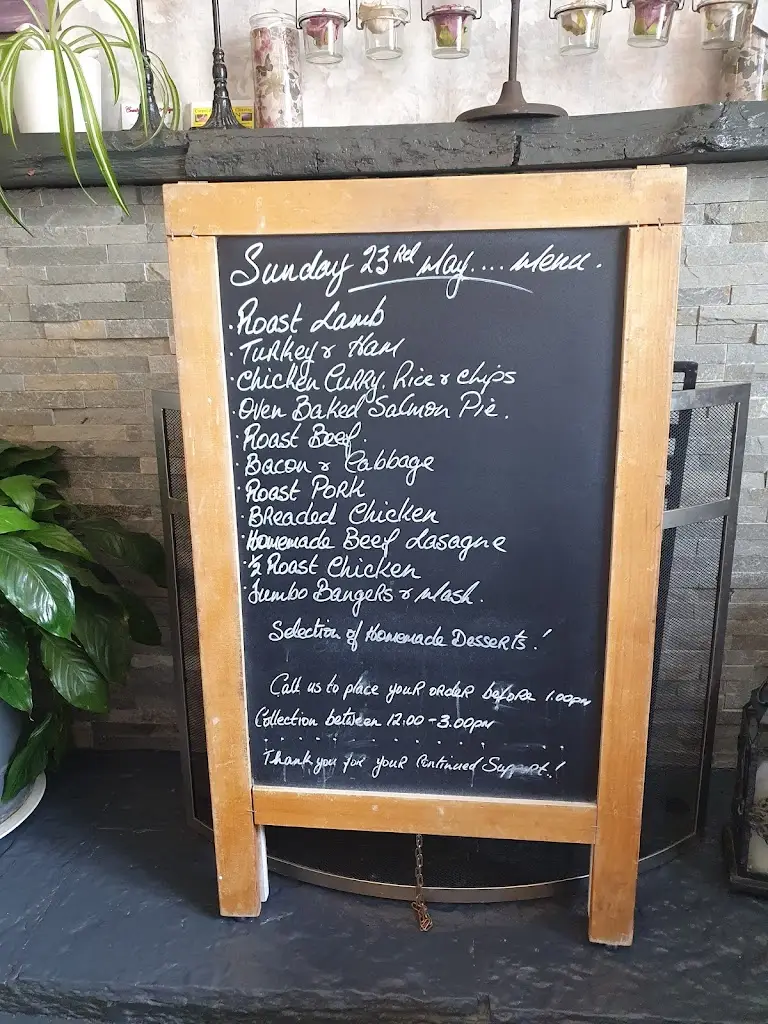 Sunday 23Rd May.... Menu.
· Roast Lamb
· Turkey & Ham
· Chicken Curry, Rice & Chips
· Oven Baked Salmon Pie.
· Roast Beef.
· Bacon & Cabbage
· Roast Pork
· Breaded Chicken
· Homemade Beef Lasagne
· ½ Roast Chicken
· Jumbo Bangers & Mash.
Selection of Homemade Desserts!
Call us to place your order before 1.00pm
Collection between 12.00-3.00pm
Thank you for your Continued Support!